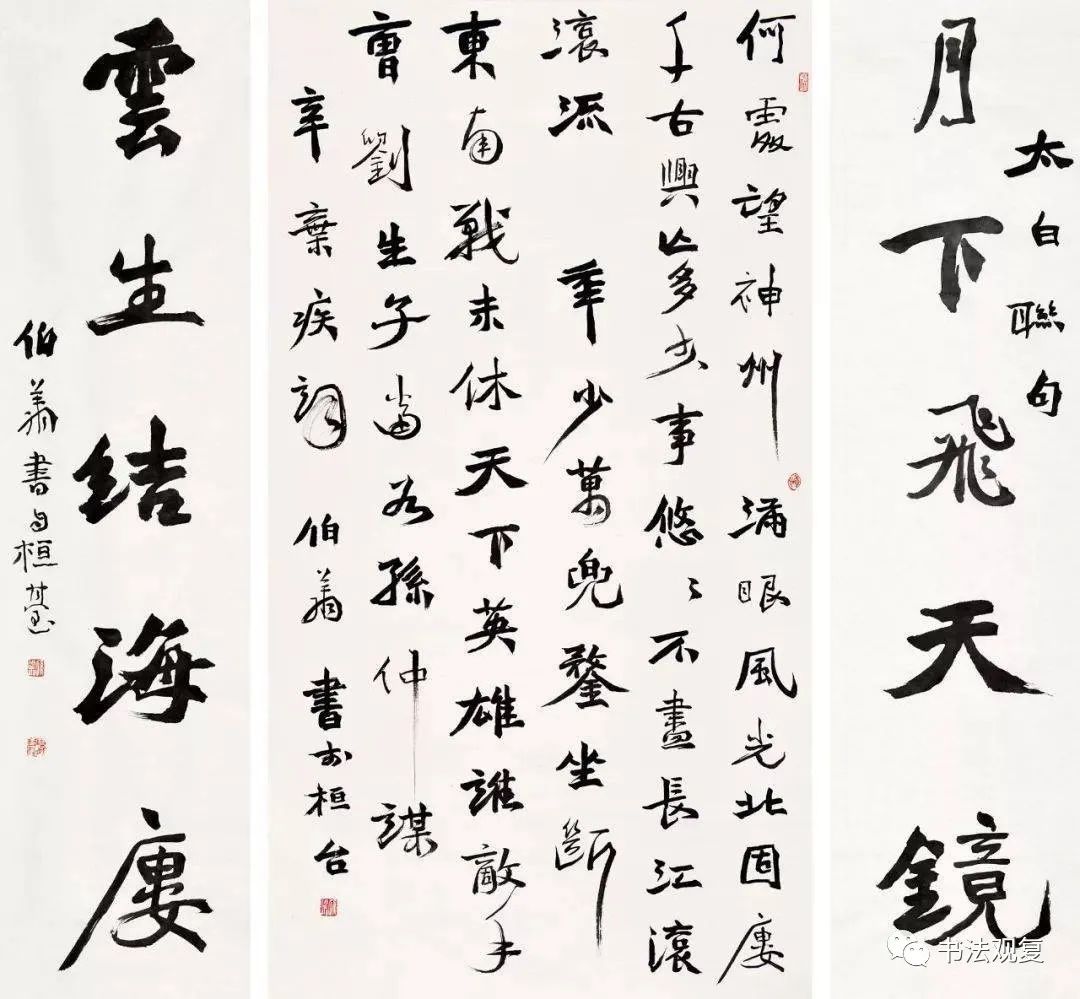 太白聯句
月下飛天鏡
何處望神州 滿眼風光北固廔
千古興亾多少事悠〻不盡長江滾
滾流 年少萬兜鍪坐斷
東南戰未休天下英雄誰敵手
曹劉生子當若孫仲謀
辛棄疾詞 伯翔 書於桓台
雲生結海廔
伯翔書桓臺
书法观复